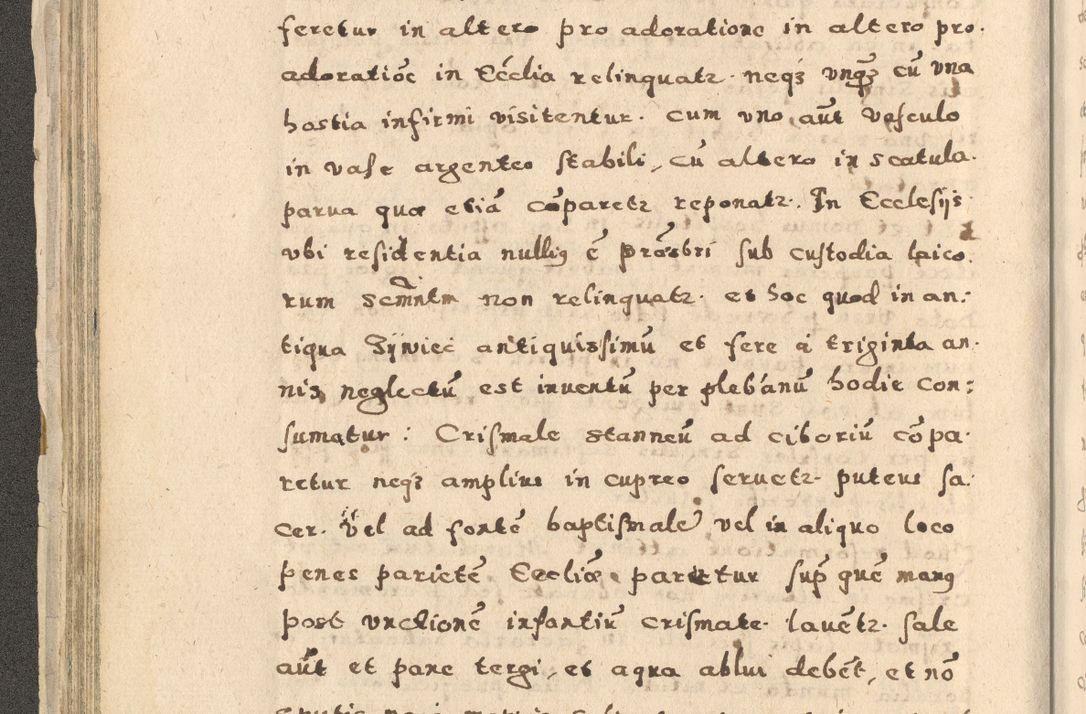 feretur in altero pro adoratione in altero pro.
adoratiōe in Eccľia relinquatz. neqz unqz cū una
hastia infirmi visitentur. cum uno aūt vasculo
in vase argenteo stabili, cū altero in scatula.
parva quæ etiā cōparetz reponatz. In Ecclesijs
vbi residentia nulliq ē prēsbri sub custodia laico.
rum scmntm non relinquatz. et hoc quod in an:
tiqua Zÿwiec antiquissimū et fere à triginta an.
nis neglectū est inventū per plebanū hodie con:
sumatur: Crismale stanneū ad ciboriū cōpa.
retur neqz amplius in cupreo servetz. puteus sa.
cer. Vel ad fontē baptismale vel in aliquo loco
penes parietē Eccliæ paretur sup quē manq
post unctionē infantiū crismate. lavētz. sale
aūt et pane tergi, et aqua ablui debēt, et nō